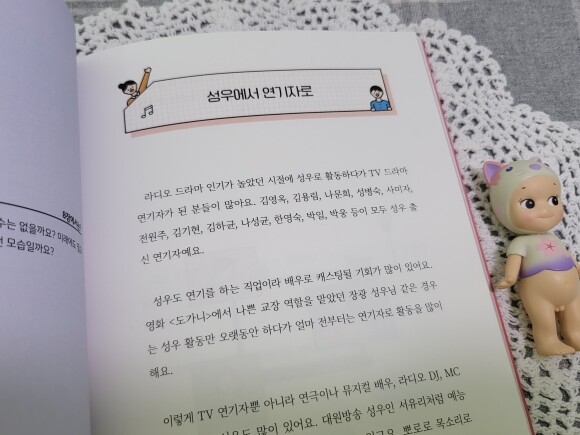 성우에서 연기자로
라디오 드라마 인기가 높았던 시절에 성우로 활동하다가 TV 드라마
연기자가 된 분들이 많아요. 김영옥, 김용림, 나문희, 성병숙, 사미자,
전원주, 김기현, 김하균, 나성균, 한영숙, 박일, 박웅 등이 모두 성우 출
신 연기자예요.
성우도 연기를 하는 직업이라 배우로 캐스팅될 기회가 많이 있어요.
영화 <도가니>에서 나쁜 교장 역할을 맡았던 장광 성우님 같은 경우
는 성우 활동만 오랫동안 하다가 얼마 전부터는 연기자로 활동을 많이
해요.
이렇게 TV 연기자뿐 아니라 연극이나 뮤지컬 배우, 라디오 DJ, MC
도 많이 있어요. 대원방송 성우인 서유리처럼 예능
뽀로로 목소리로
수는 없을까요? 미래에도
모습일까요?